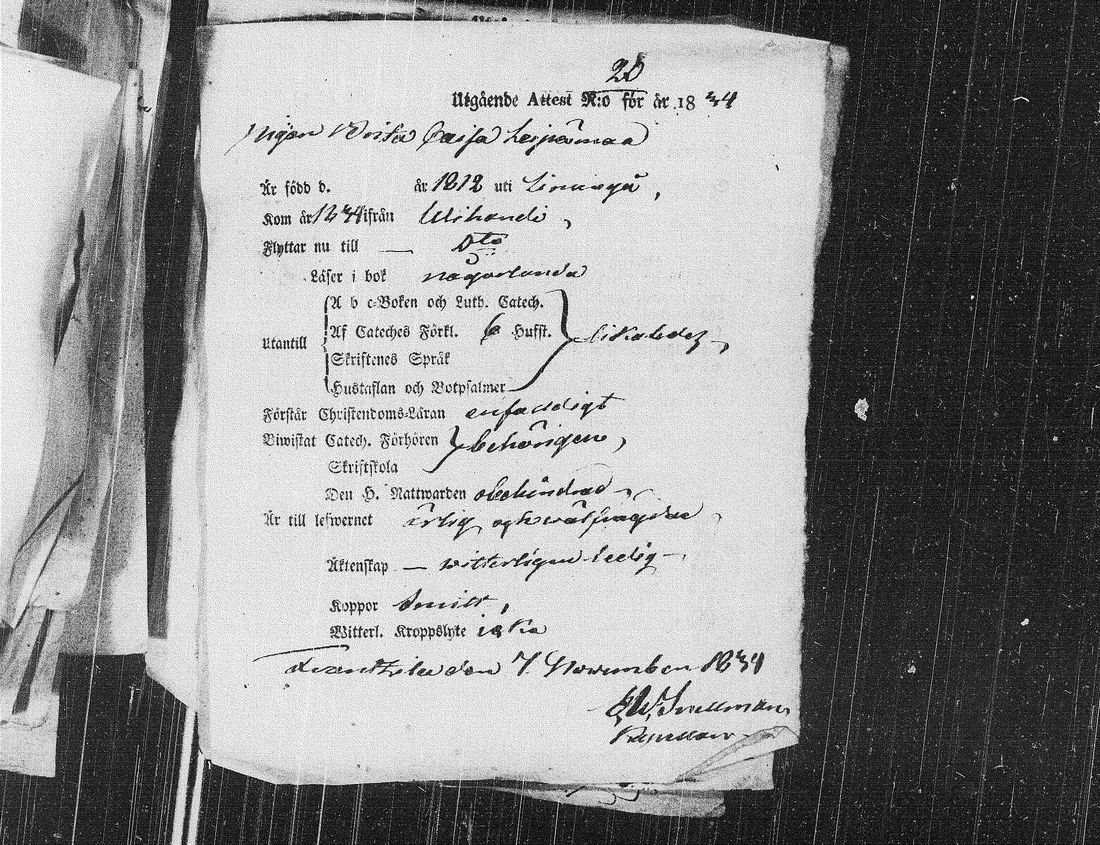 26
Utgående Attest N:o för år 1834
Pigan Brita Caisa
Är född d. år 1812 uti Limingå,
Kom år 1834 ifrån Wihandi,
Flyttar nu till — Dto
Läser i bok någorlunda
A b c-Boken och Luth. Catech.
Af Cateches Förkl. 6 Hufst.
Utantill likaledes,
Skriftenes Språk
Hustaflan och Botpsalmer
Förstår Christendoms-Läran enfaldigt
Biwistat Catech. Förhören behörigen,
Skriftskola
Den H. Nattwarden obehindrad,
Är till lefwernet ärlig och wälfrägdad,
Äktenskap — witterligen ledig,
Koppor
Witterl. Kroppslyte icke
Frantzila den 7. November 1834
Snellman